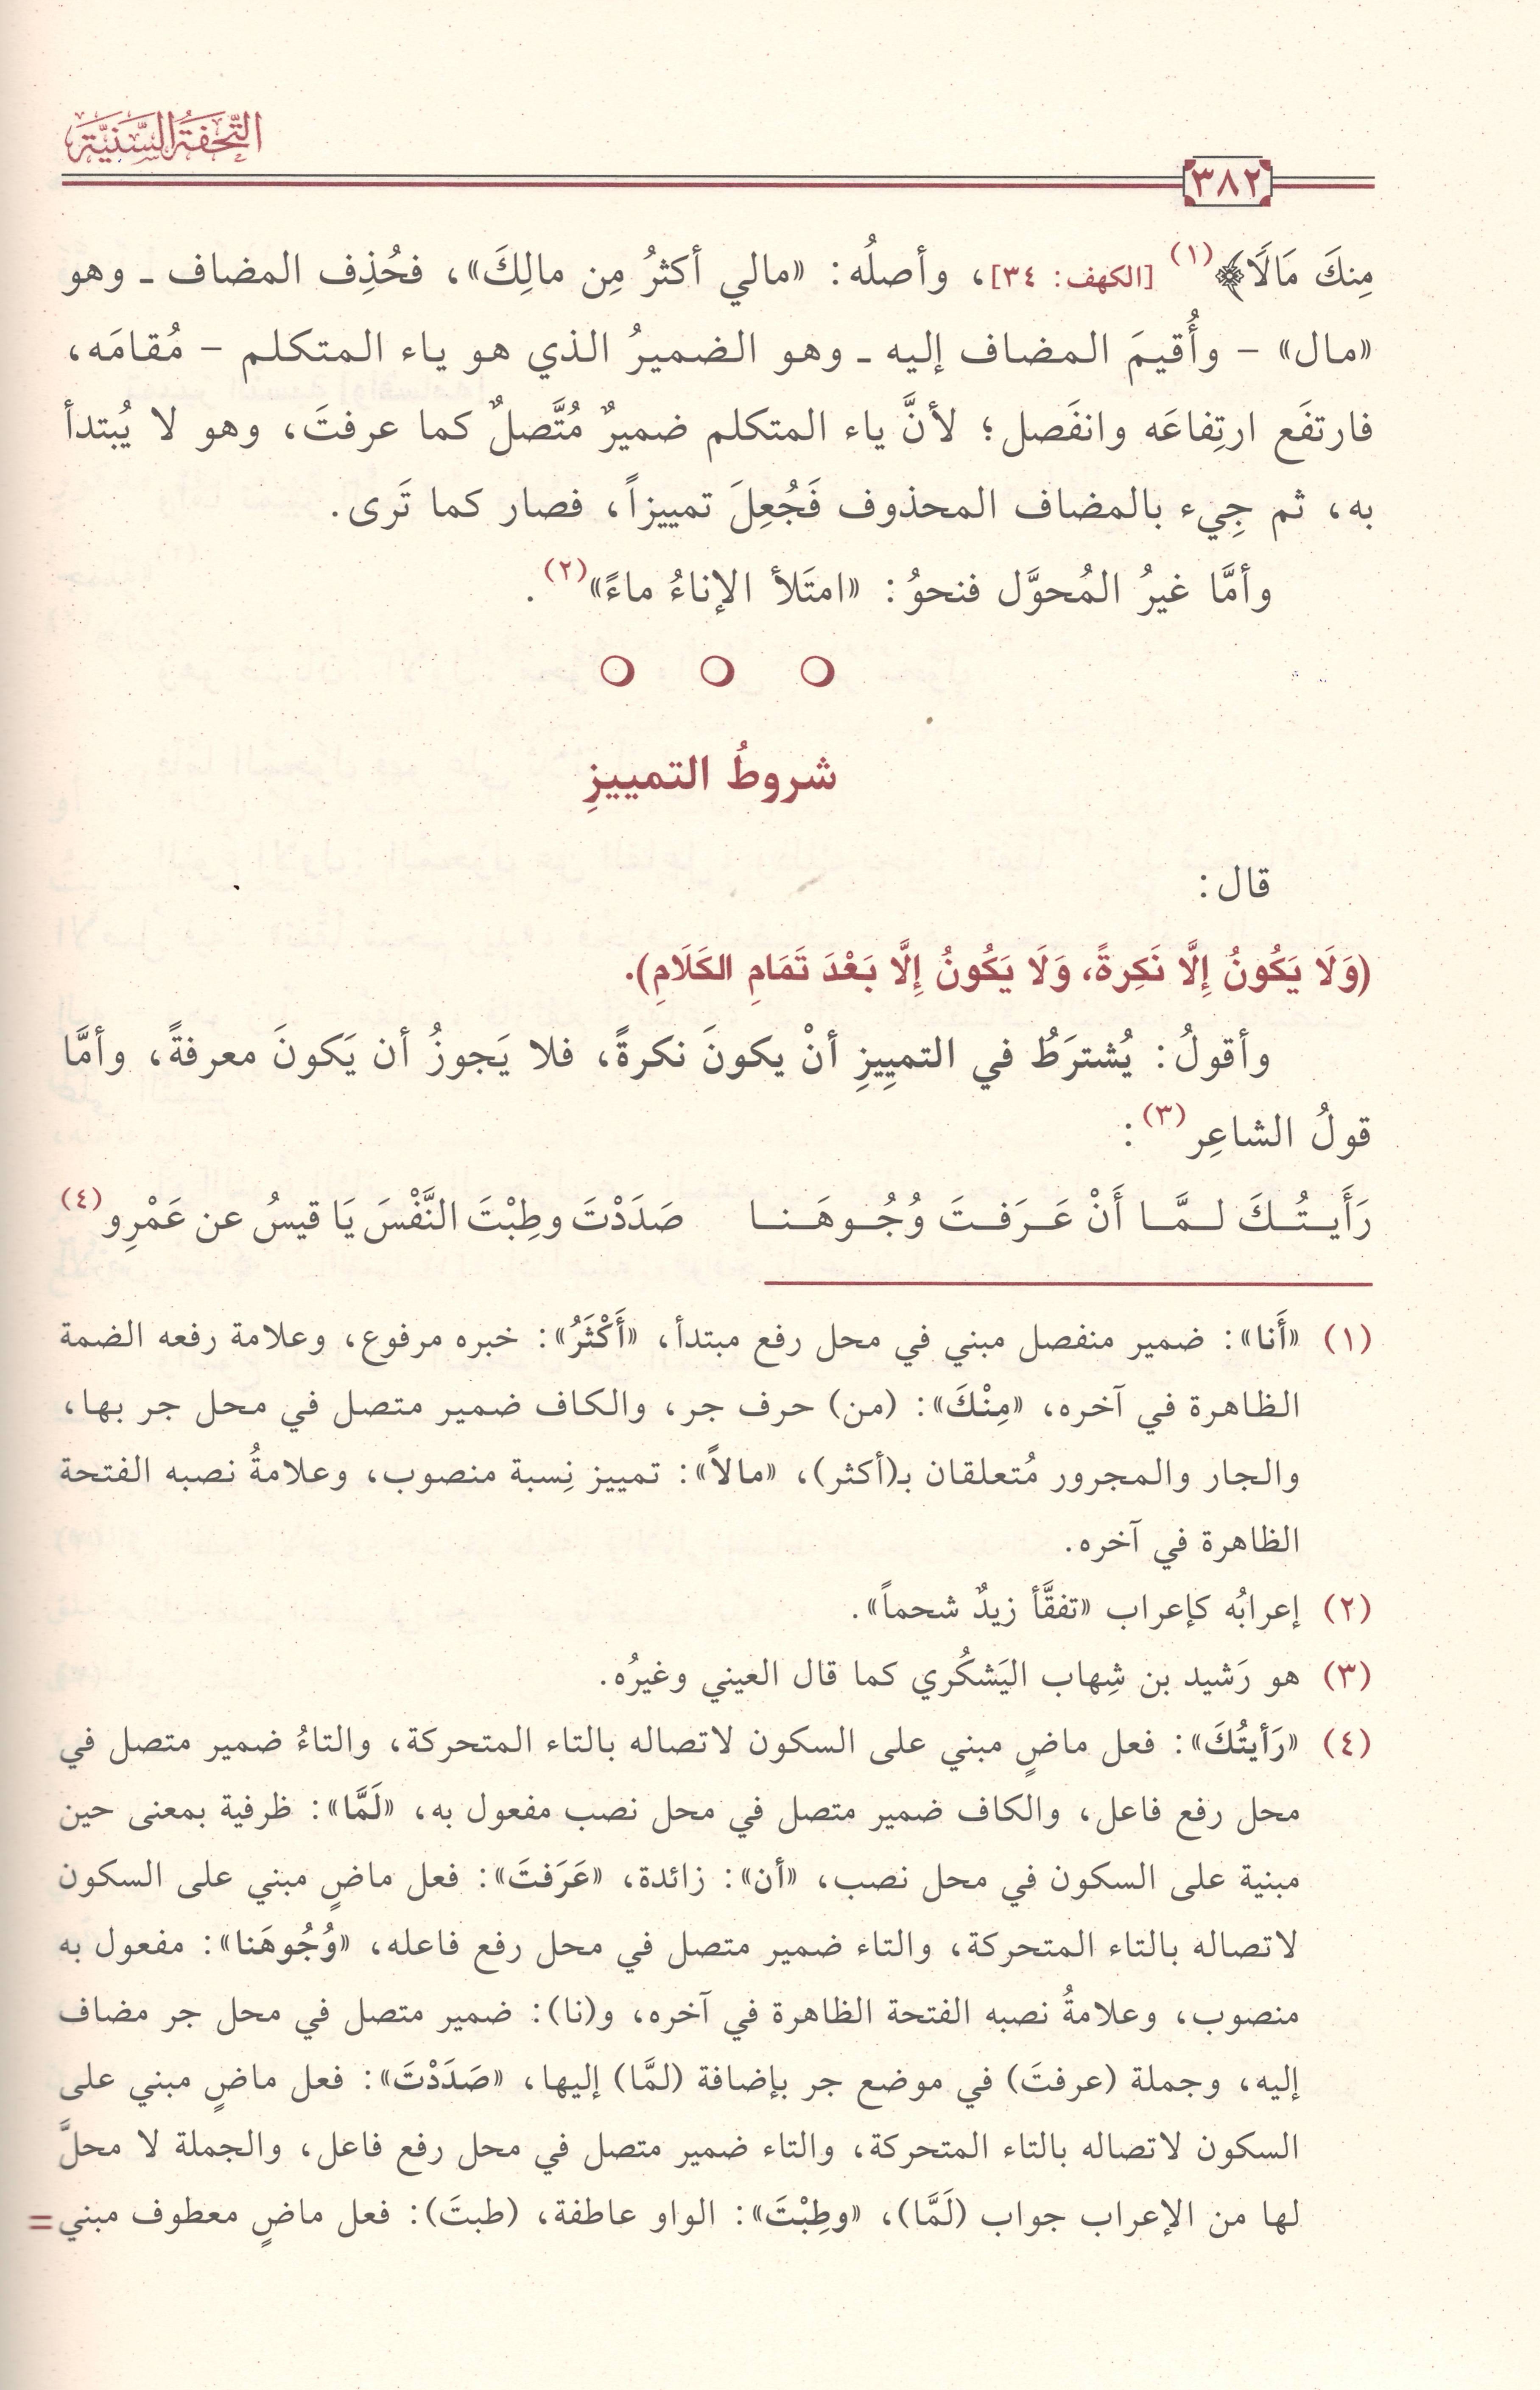 التُّحْفَةُ السَّنِيَّة
٣٨٢
مِنكَ مَالًا﴾(١) [الكهف: ٣٤]، وأصلُه: «مالي أكثرُ مِن مالِكَ»، فحُذِف المضاف ـ وهو
«مال» - وأُقيمَ المضاف إليه ـ وهو الضميرُ الذي هو ياء المتكلم - مُقامَه،
فارتفَع ارتِفاعَه وانفَصل؛ لأنَّ ياء المتكلم ضميرٌ مُتَّصلٌ كما عرفتَ، وهو لا يُبتدأ
به، ثم جِيء بالمضاف المحذوف فَجُعِلَ تمييزاً، فصار كما تَرى.
وأمَّا غيرُ المُحوَّل فنحوُ: «امتَلأ الإناءُ ماءً»(٢).
شروطُ التمييزِ
قال:
(وَلَا يَكُونُ إِلَّا نَكِرةً، وَلَا يَكُونُ إِلَّا بَعْدَ تَمَامِ الكَلَامِ).
وأقولُ: يُشترَطُ في التميِيزِ أنْ يكونَ نكرةً، فلا يَجوزُ أن يَكونَ معرفةً، وأمَّا
قولُ الشاعِر(٣):
رَأَيـتُـكَ لـمَّـا أَنْ عَـرَفـتَ وُجُـوهَـنـا صَدَدْتَ وطِبْتَ النَّفْسَ يَا قيسُ عن عَمْرِو(٤)
(١) «أَنا»: ضمير منفصل مبني في محل رفع مبتدأ، «أَكْثَرُ»: خبره مرفوع، وعلامة رفعه الضمة
الظاهرة في آخره، «مِنْكَ»: (من) حرف جر، والكاف ضمير متصل في محل جر بها،
والجار والمجرور مُتعلقان بـ(أكثر)، «مالاً»: تمييز نِسبة منصوب، وعلامةُ نصبه الفتحة
الظاهرة في آخره.
(٢) إعرابُه كإعراب «تفقَّأ زيدٌ شحماً».
(٣) هو رَشيد بن شِهاب اليَشكُري كما قال العيني وغيرُه.
(٤) «رَأيتُكَ»: فعل ماضٍ مبني على السكون لاتصاله بالتاء المتحركة، والتاءُ ضمير متصل في
محل رفع فاعل، والكاف ضمير متصل في محل نصب مفعول به، «لَمَّا»: ظرفية بمعنى حين
مبنية على السكون في محل نصب، «أن»: زائدة، «عَرَفتَ»: فعل ماضٍ مبني على السكون
لاتصاله بالتاء المتحركة، والتاء ضمير متصل في محل رفع فاعله، «وُجُوهَنا»: مفعول به
منصوب، وعلامةُ نصبه الفتحة الظاهرة في آخره، و(نا): ضمير متصل في محل جر مضاف
إليه، وجملة (عرفتَ) في موضع جر بإضافة (لمَّا) إليها، «صَدَدْتَ»: فعل ماضٍ مبني على
السكون لاتصاله بالتاء المتحركة، والتاء ضمير متصل في محل رفع فاعل، والجملة لا محلَّ
لها من الإعراب جواب (لَمَّا)، «وطِبْتَ»: الواو عاطفة، (طبتَ): فعل ماضٍ معطوف مبني =